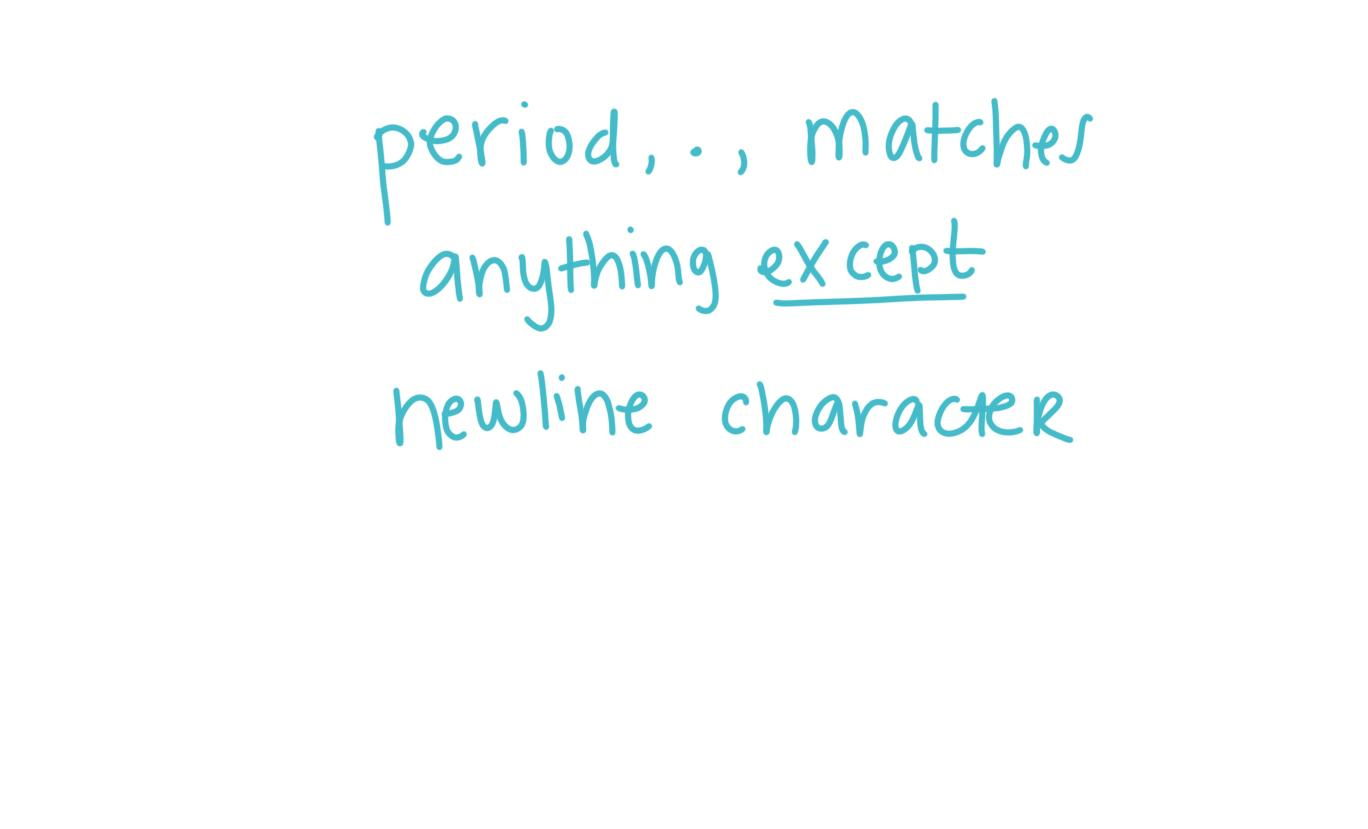 period, ., matches
anything except
newline character